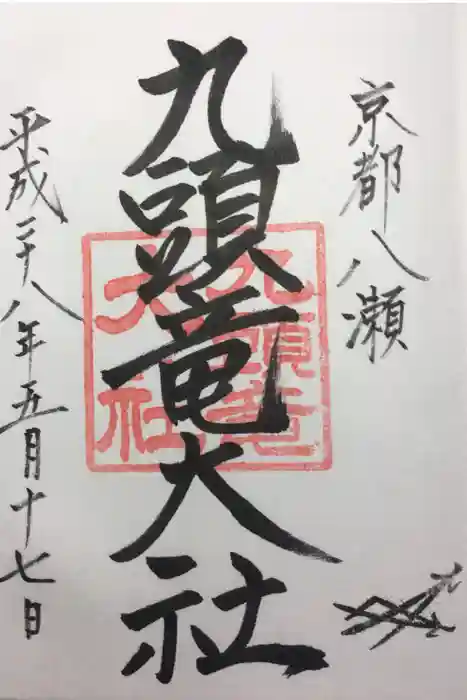 京都八瀬
九頭竜大社
九頭竜
大社
平成二十八年五月十七日